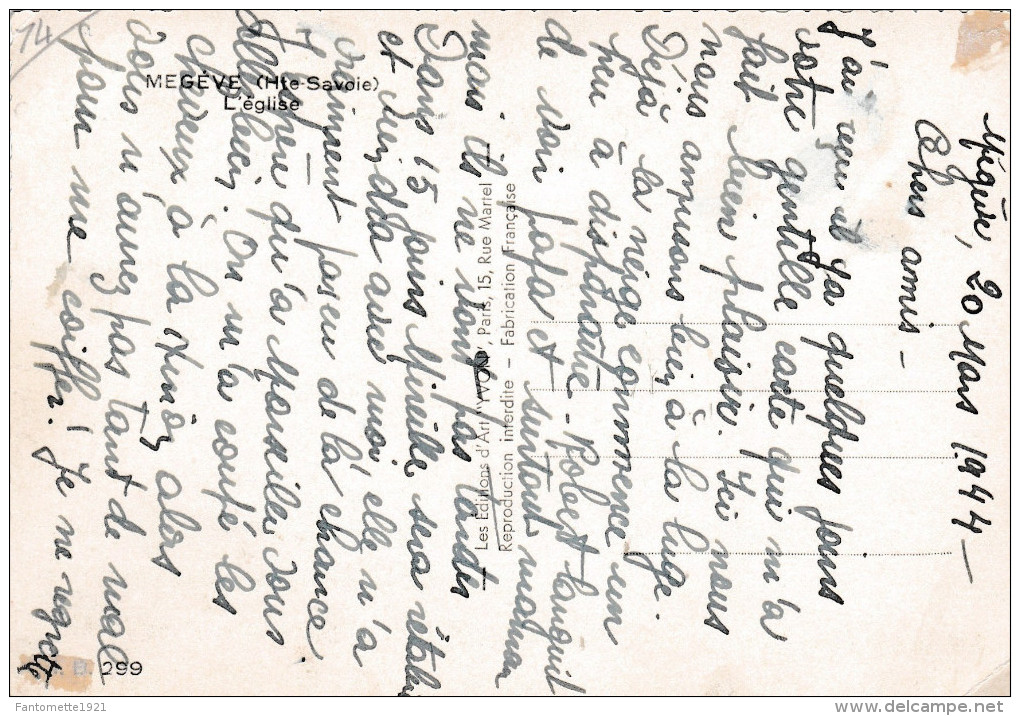 14
Mégève, 20 Mars 1944 —
Chers amis —
J'ai reçu il y a quelques jours
votre gentille carte qui m'a
fait bien plaisir. Ici nous
nous amusons bien à la luge.
Déjà la neige commence un
peu à disparaître - Robert languit
de voir papa et surtout maman
mais ils ne vont pas tarder
Dans 15 jours Mireille sera rétablie
et viendra avec moi, elle n'a
vraiment pas eu de la chance.
J'espère qu'à Marseille vous
allez bien. On m'a coupé les
cheveux à la alors
vous n'aurez pas tant de mal
pour me coiffer! Je ne regrette
MEGÈVE (Hte-Savoie)
L'église
Les Editions d'Art "YVON", Paris, 15, Rue Martel
Reproduction interdite — Fabrication Française
299
Fantomette1921
delcampe.net